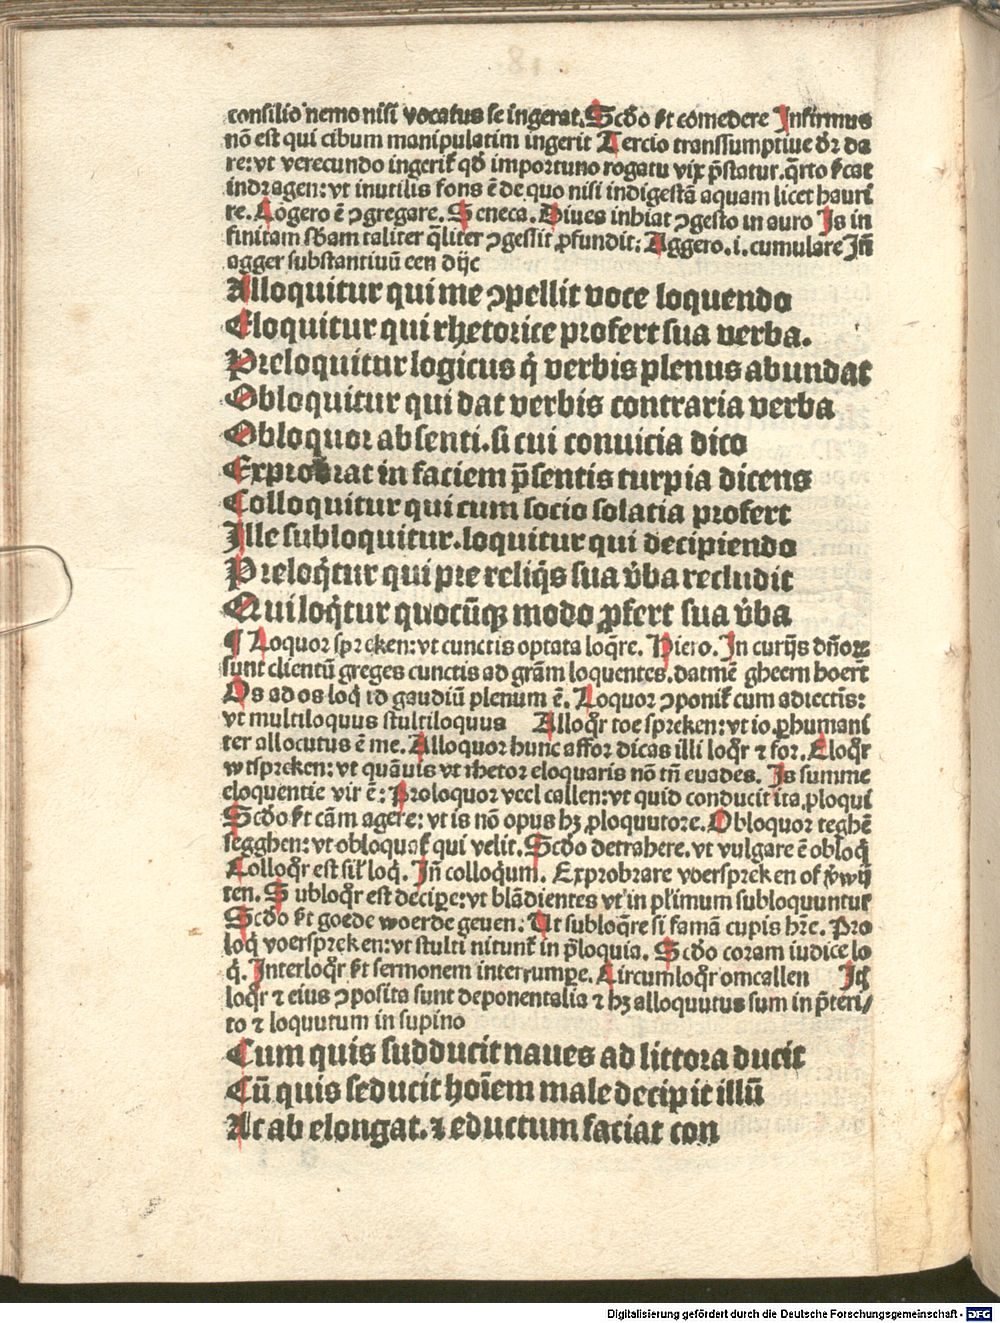 consilio nemo nisi vocatus se ingerat. Scdo ẜt cōmedere Infirmus
nō est qui cibum manipulatim ingerit Tercio transsumptiue dr̄ da
re: vt verecundo ingerit̉ qd̓ importuno rogatu vix p̄statur. q̄rto ẜcat
indragen: vt inutilis fons ē de quo nisi indigestā aquam licet hauri
re. Lōgero ē ꝯgregare. Seneca. Diues inhiat ꝯgesto in auro Is in
finitam sb̄am taliter q̄liter ꝯgessit ꝓfundit: Aggero .i. cumulare Iñ
agger substantiuū een dijc
Alloquitur qui me ꝯpellit voce loquendo
Eloquitur qui rhetorice profert sua verba.
Preloquitur logicus q̓ verbis plenus abundat
Obloquitur qui dat verbis contraria verba
Obloquor absenti. si cui conuicia dico
Exprobrat in faciem p̄sentis turpia dicens
Colloquitur qui cum socio solatia profert
Ille subloquitur. loquitur qui decipiendo
Preloq̓tur qui pre reliq̓s sua v̓ba recludit
Qui loq̓tur quocūqꝫ modo ꝓfert sua v̓ba
¶ Loquor spreken: vt cunctis optata loq̄re. Hiero. In curijs dño⁊ꝝ
sunt clientū greges cunctis ad grām loquentes. datmē gheern hoert
Os ad os loq̓ id gaudiū plenum ē. Loquor ꝯponit̉ cum adiectīs:
vt multiloquus stultiloquus Alloq̄r toe spreken: vt io. ꝑhumani
ter allocutus ē me. Alloquor hunc affor dicas illi loq̄r ⁊ for. Eloq̄r
wtspreken: vt quāuis vt rhetor eloquaris nō tñ euades. Is summe
eloquentie vir ē: Proloquor veel callen: vt quid conducit ita ꝓloqui
Scdo ẜt cām agere: vt is nō opus hꝫ ꝓloquutore. Obloquor teghē
segghen: vt obloquat̉ qui velit. Scdo detrahere. vt vulgare ē obloq̓
Colloq̄r est sil̓ loq̓. Iñ colloq̄um. Exprobrare voerspreken of v̓wij
ten. Subloq̄r est decipe: vt blādientes vt in pl̓imum subloquuntur
Scdo ẜt goede woerde geuen: Vt subloq̄re si famā cupis hr̄e. Pro
loq̓ voerspreken: vt stulti nitunt̉ in p̄loquia. Scdo coram iudice lo
q̓. Interloq̄r ẜt sermonem interrumpe. Circumloq̄r omcallen Itꝫ
loq̄r ⁊ eius ꝯposita sunt deponentalia ⁊ hꝫ alloquutus sum in p̄teri/
to ⁊ loquutum in supino
Cum quis subducit naues ad littora ducit
Cū quis seducit hoīem male decipit illū
Ac ab elongat. ⁊ eductum faciat con
Digitalisierung gefördert durch die Deutsche Forschungsgemeinschaft - DFG